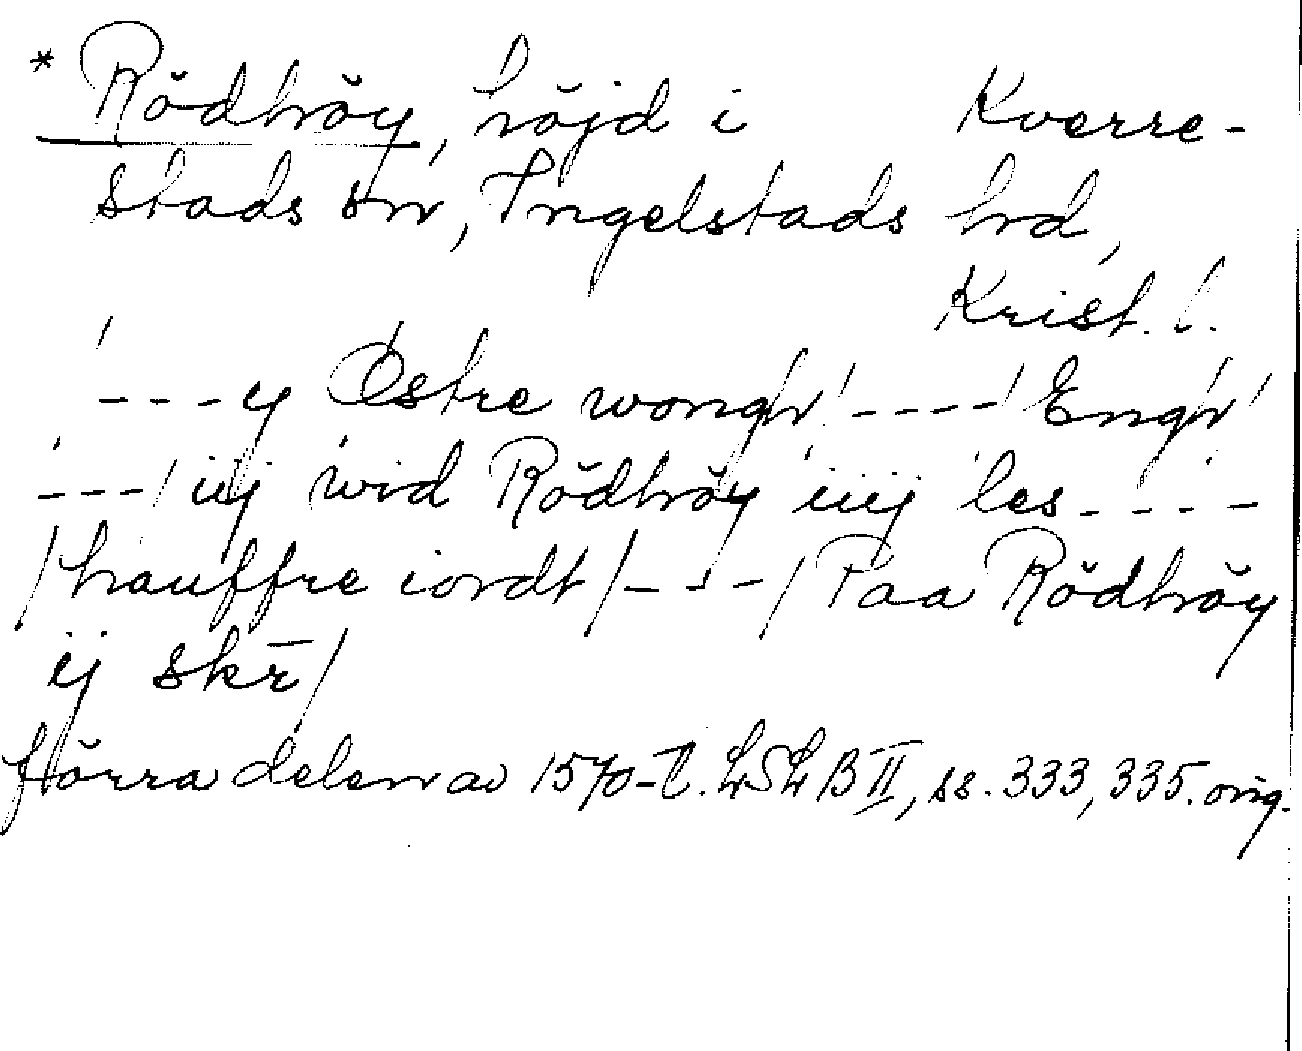 * Rödhöy, höjd i Kverre-
stads sn, Ingelstads hrd,
Krist. l.
/---y Östre wongh/----/Engh/
---/iij wid Rödhöy iiij les----
/hauffre iordt/---/Paa Rödhöy
ij skr̄/
förra delen av 1570-t. LSLB II, ss. 333, 335. orig.